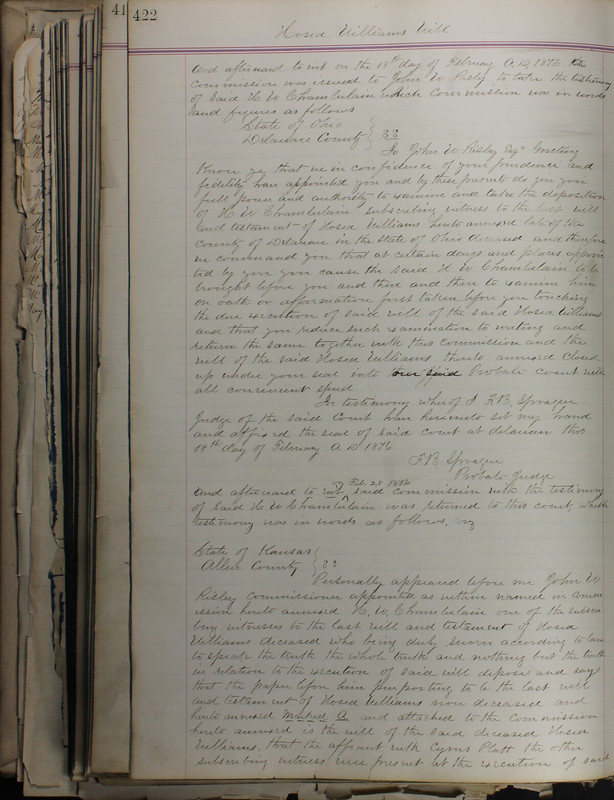 41
422
Hosea Williams Will
and afterward to wit on the 18th day of February A.D. 1876 the
commission was issued to John W Risley to take the testimony
of said H W Chamberlain which commission was in words
and figures as follows
State of Ohio
Delaware County } SS
To John W Risley Esqr Greeting
Know ye that we in confidence of your prudence and
fidelity have appointed you and by these presents do give you
full power and authority to examine and take the deposition
of H W Chamberlain subscribing witness to the last will
and testament of Hosea Williams hereto annexed late of the
County of Delaware in the State of Ohio deceased and therefore
we command you that at certain days and places appoin
ted by you you cause the said H W Chamberlain to be
brought before you and then and there to examine him
on oath or affirmation first taken before you touching
the due execution of said will of the said Hosea Williams
and that you reduce such examination to writing and
return the same together with this Commission and the
will of the said Hosea Williams thereto annexed closed
up under your seal into our said Probate Court with
all convenient speed
In testimony whereof I F.B. Sprague
Judge of the said Court have hereunto set my hand
and affixed the seal of said court at Delaware this
18th day of February A D 1876
F.B. Sprague
Probate Judge
on Feb. 28 1876
And afterward to wit said commission with the testimony
of said H W Chamberlain was returned to this court, which
testimony was in words as follows, viz
State of Kansas
Allen County } SS
Personally appeared before me John W
Risley commissioner appointed as within named in comm
ission hereto annexed H. W. Chamberlain one of the subscri
bing witnesses to the last will and testament of Hosea
Williams deceased who being duly sworn according to law
to speak the truth the whole truth and nothing but the truth
in relation to the execution of said will deposes and says
that the paper before him purporting to be the last will
and testament of Hosea Williams now deceased and
hereto annexed marked A and attached to the commission
hereto annexed is the will of the said deceased Hosea
Williams, that the affiant with Cyrus Platt the other
subscribing witness were present at the execution of said